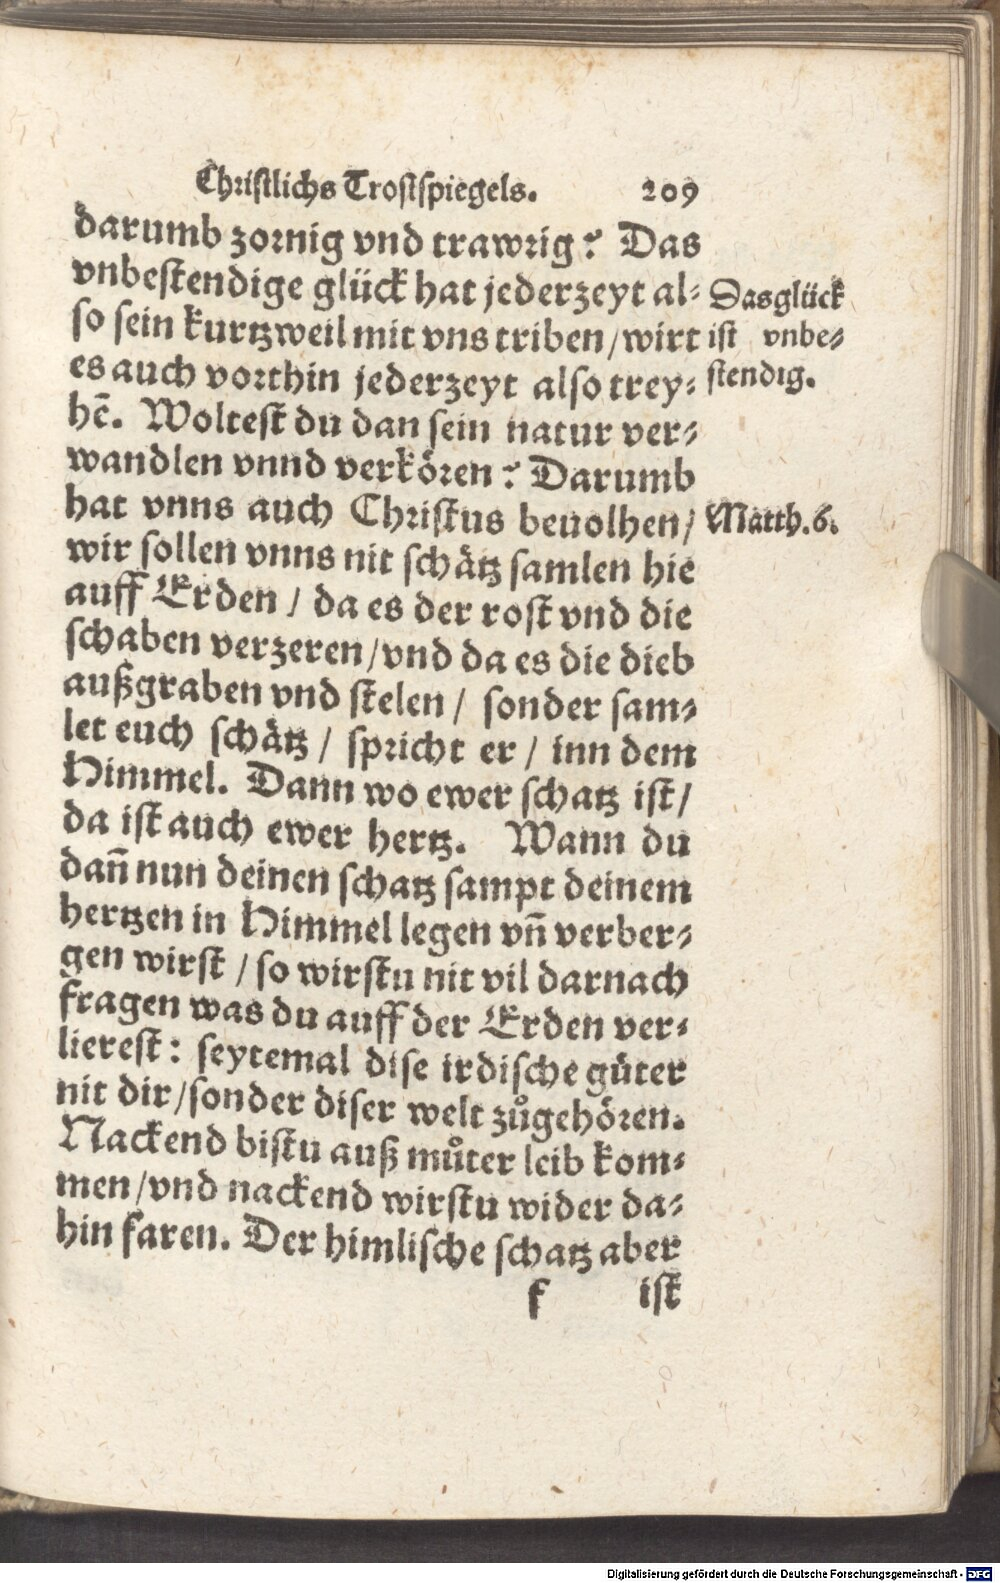 Christlichs Trostspiegels. 209
darumb zornig vnd trawrig? Das
vnbestendige glück hat jederzeyt al-
so sein kurtzweil mit vns triben/wirt
es auch vorthin jederzeyt also trey-
hē. Woltest du dan sein natur ver-
wandlen vnnd verkören? Darumb
hat vnns auch Christus beuolhen/
wir sollen vnns nit schätz samlen hie
auff Erden / da es der rost vnd die
schaben verzeren/vnd da es die dieb
außgraben vnd stelen / sonder sam-
let euch schätz / spricht er / inn dem
Himmel. Dann wo ewer schatz ist/
da ist auch ewer hertz. Wann du
dan̄ nun deinen schatz sampt deinem
hertzen in Himmel legen vn̄ verber-
gen wirst / so wirstu nit vil darnach
fragen was du auff der Erden ver-
lierest: seytemal dise irdische güter
nit dir/sonder diser welt zůgehören.
Nackend bistu auß můter leib kom-
men/vnd nackend wirstu wider da-
hin faren. Der himlische schatz aber
f ist
Das glück
ist vnbe-
stendig.
Matth.6.
Digitalisierung gefördert durch die Deutsche Forschungsgemeinschaft - DFG